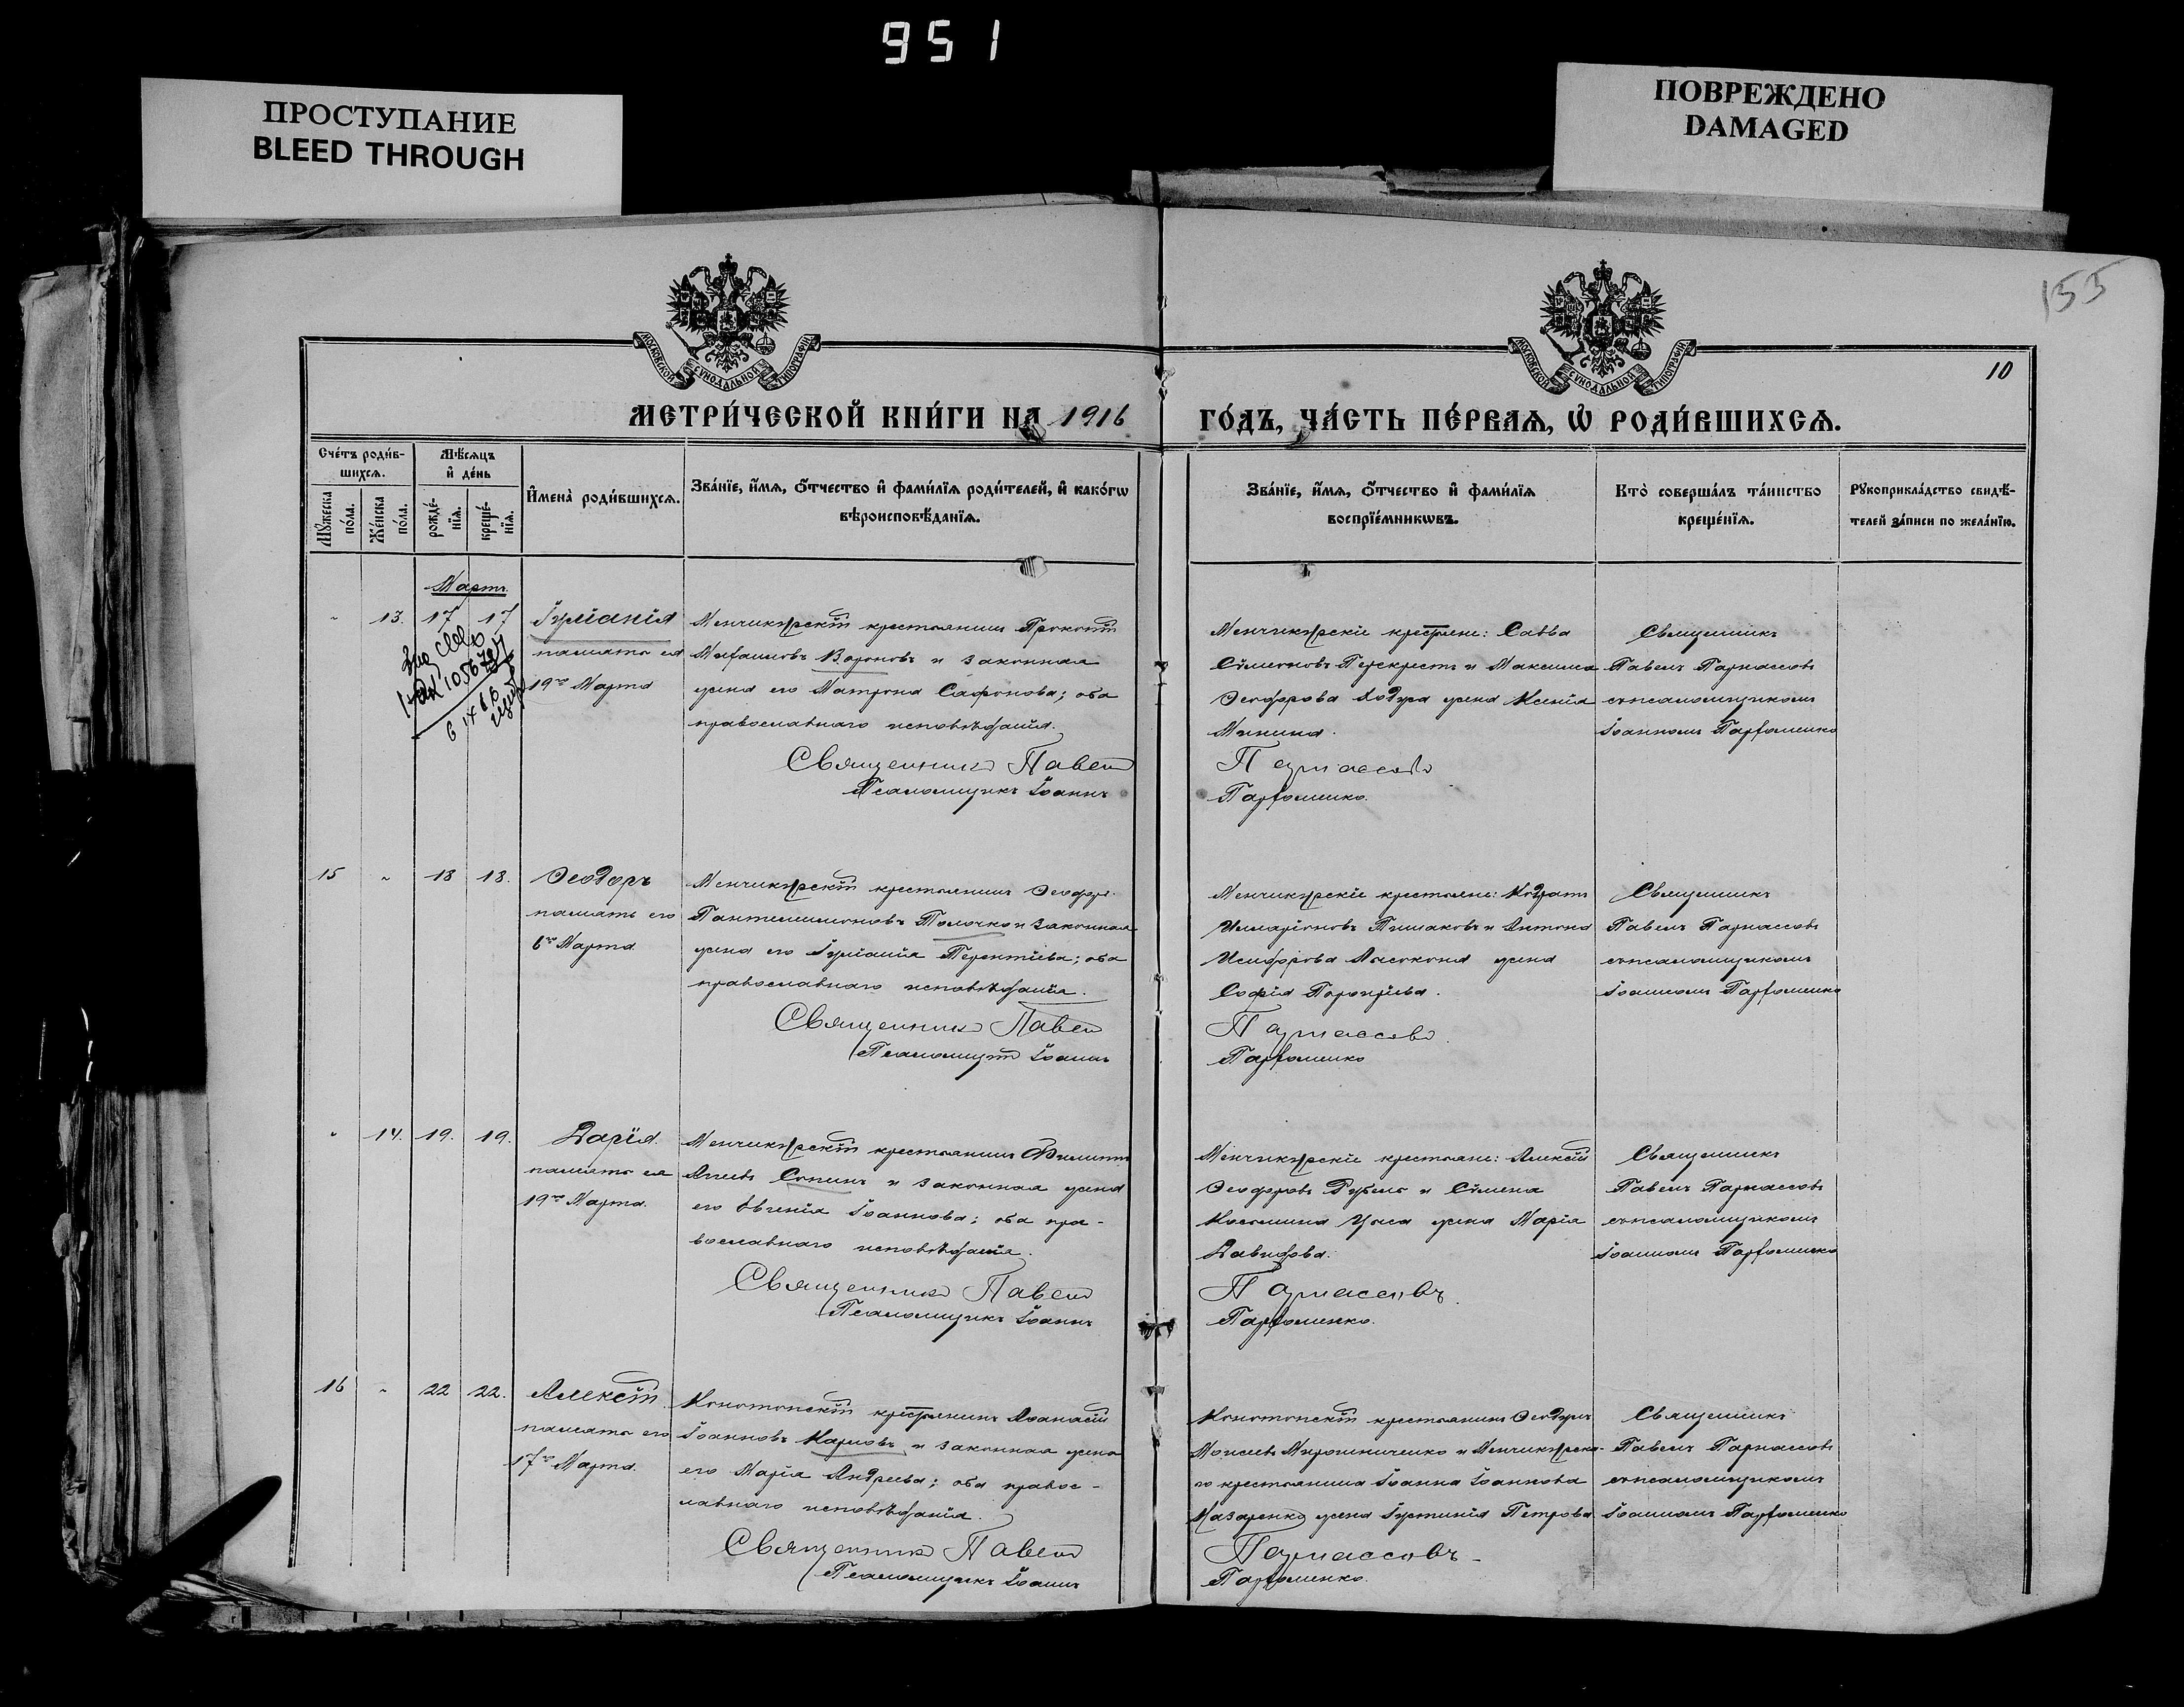 951
ПРОСТУПАНИЕ
BLEED THROUGH
ПОВРЕЖДЕНО
DAMAGED
155
МОСКОВСКОЙ СУНОДАЛЬНОЙ ТИПОГРАФІИ
МОСКОВСКОЙ СУНОДАЛЬНОЙ ТИПОГРАФІИ
10
МЕТРИ́ЧЕСКОЙ КНИ́ГИ НА 1916
ГО́ДЪ, ЧА́СТЬ ПЕ́РВАѦ, Ѡ҆ РОДИ́ВШИХСѦ.
Сче́тъ роди́в-
шихсѧ.
Мѣ́сѧцъ
и҆ де́нь
Мꙋ́жеска
по́ла.
Же́нска
по́ла.
рожде́-
нїѧ.
креще́-
нїѧ.
И҆мена̀ роди́вшихсѧ.
Зва́нїе, и҆́мѧ, ѻ҆́тчество и҆ фами́лїѧ роди́телей, и҆ како́гѡ
вѣроисповѣ́данїѧ.
Зва́нїе, и҆́мѧ, ѻ҆́тчество и҆ фами́лїѧ
воспрїе́мникѡвъ.
Кто̀ соверша́лъ та́инство
креще́нїѧ.
Рꙋкоприкла́дство свидѣ́-
телей за́писи по жела́нїю.
Мартъ.
" 13. 17 17
Іуліанія
память ея
19го Марта
Менчикурскій крестьянинъ Прокопій
Михаиловъ Вороновъ и законная
жена его Матрона Сафонова; оба
православнаго исповѣданія.
Священникъ Павелъ
Псаломщикъ Іоаннъ
Менчикурскіе крестьяне: Савва
Сѵмеоновъ Перекрестъ и Максима
Ѳеодорова Ходуса жена Ксенія
Минина.
Парнассовъ
Парфоменко.
Священникъ
Павелъ Парнассовъ
съ псаломщикомъ
Іоанномъ Парфоменко
15 " 18 18.
Ѳеодоръ
память его
6го Марта
Менчикурскій крестьянинъ Ѳеодоръ
Пантелеимоновъ Толочко и законная
жена его Іуліанія Терентіева; оба
православнаго исповѣданія.
Священникъ Павелъ
Псаломщикъ Іоаннъ
Менчикурскіе крестьяне: Кодратъ
Иларіоновъ Пишаковъ и Антона
Исидорова Лысоконя жена
Софія Порфиріева.
Парнассовъ.
Парфоменко
Священникъ
Павелъ Парнассовъ
съ псаломщикомъ
Іоанномъ Парфоменко
" 14. 19. 19.
Дарія.
память ея
19го Марта.
Менчикурскій крестьянинъ Филиппъ
Сопинъ и законная жена
его Евгенія Іоаннова; оба пра-
вославнаго исповѣданія.
Священникъ Павелъ
Псаломщикъ Іоаннъ
Менчикурскіе крестьяне: Алексій
Ѳеодоровъ и Сѵмена
Косьмина жена Марія
Давидова.
Парнассовъ.
Парфоменко.
Священникъ
Павелъ Парнассовъ
съ псаломщикомъ
Іоанномъ Парфоменко
16 " 22 22.
Алексій.
память его
17го Марта.
Конотопскій крестьянинъ Аѳанасій
Іоанновъ Карповъ и законная жена
его Марія Андреева; оба правос-
лавнаго исповѣданія.
Священникъ Павелъ
Псаломщикъ Іоаннъ
Конотопскій крестьянинъ Ѳеодоръ
Моисеевъ Мирошниченко и Менчикурска-
го крестьянина Іоанна Іоаннова
Назаренко жена Іустинія Петрова
Парнассовъ.
Парфоменко.
Священникъ
Павелъ Парнассовъ
съ псаломщикомъ
Іоанномъ Парфоменко